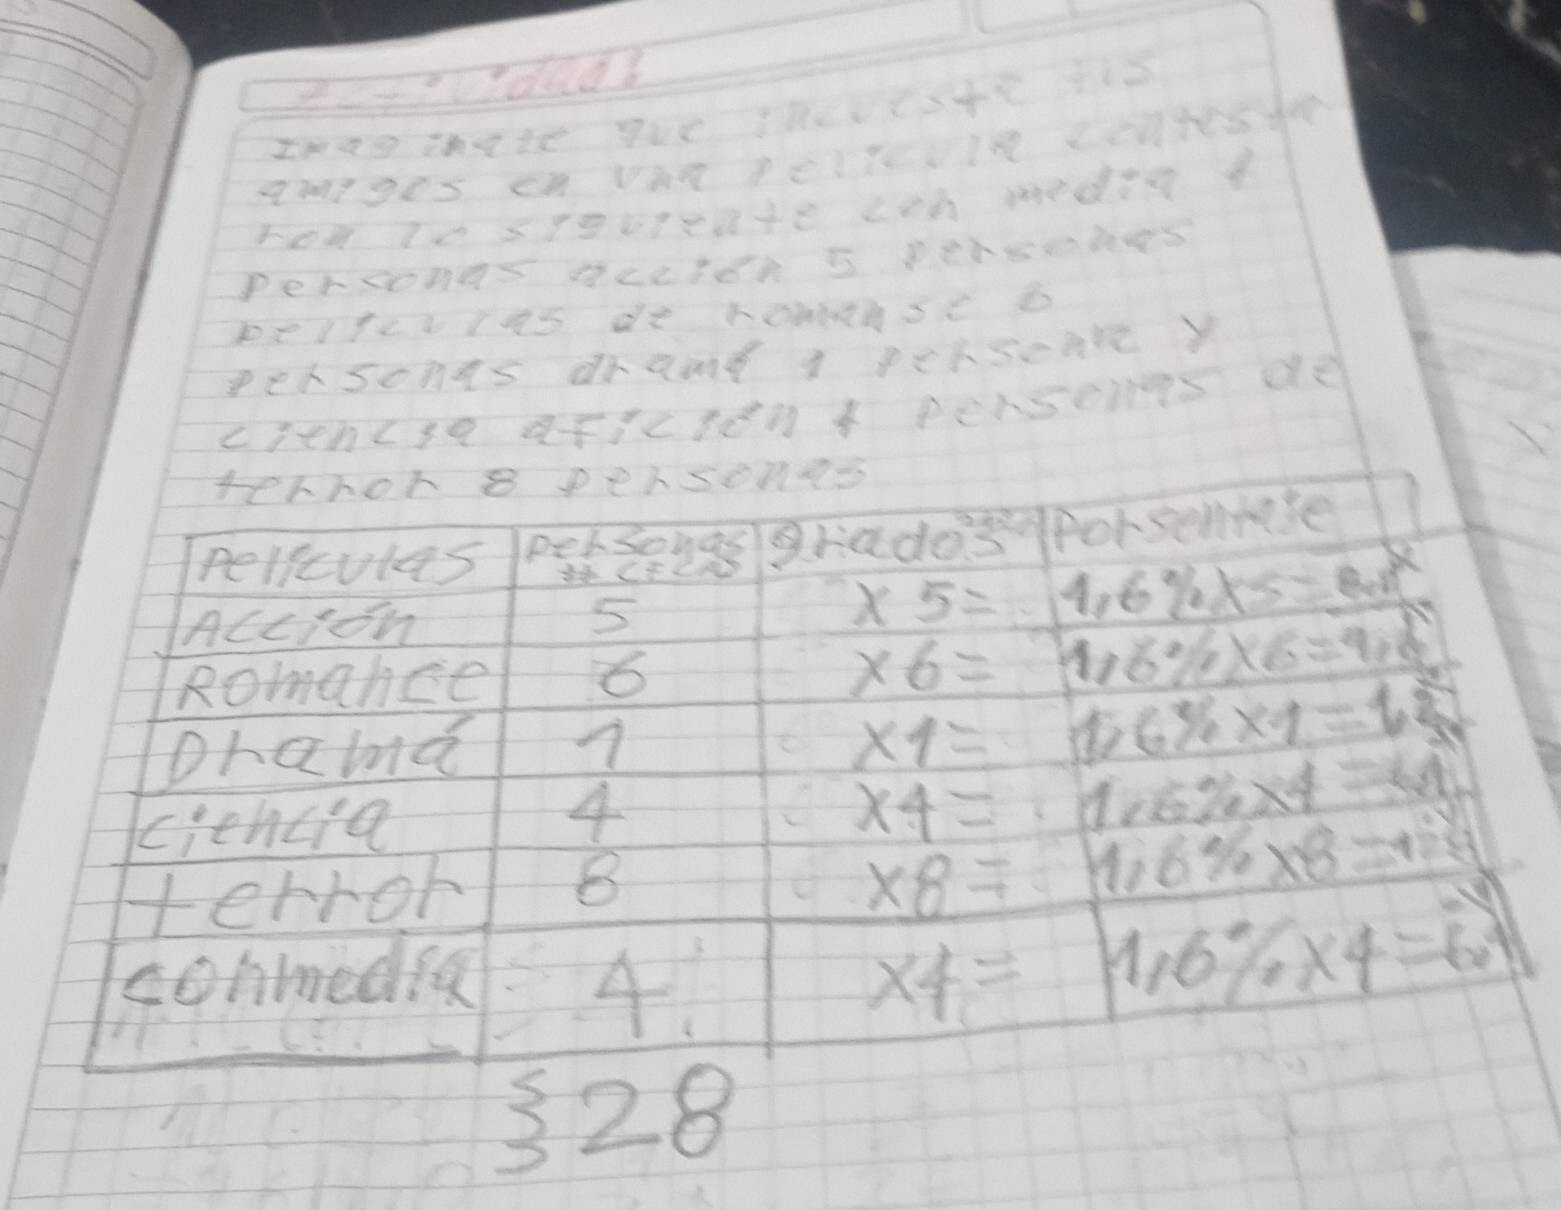 Actividad:
Imaginate que incueste tis
amigos en una pelicula contesta
ron lo siguiente con media 4
personas acción 5 personas
peliculas de romanse 6
personas dramá 1 persona y
ciencia aficción 4 personas de
terror 8 personas
Peliculas personas grados Porsentaje
Acción 5 x5= 1,6%x5=
Romance 6 x6= 1,6%x6=9,6
Dramá 1 x1= 1,6%x1=1,6
ciencia 4 x4= 1,6%x4=
terror 8 x8= 1,6%x8=
conmedia 4 x4= 1,6%x4=6,4
28